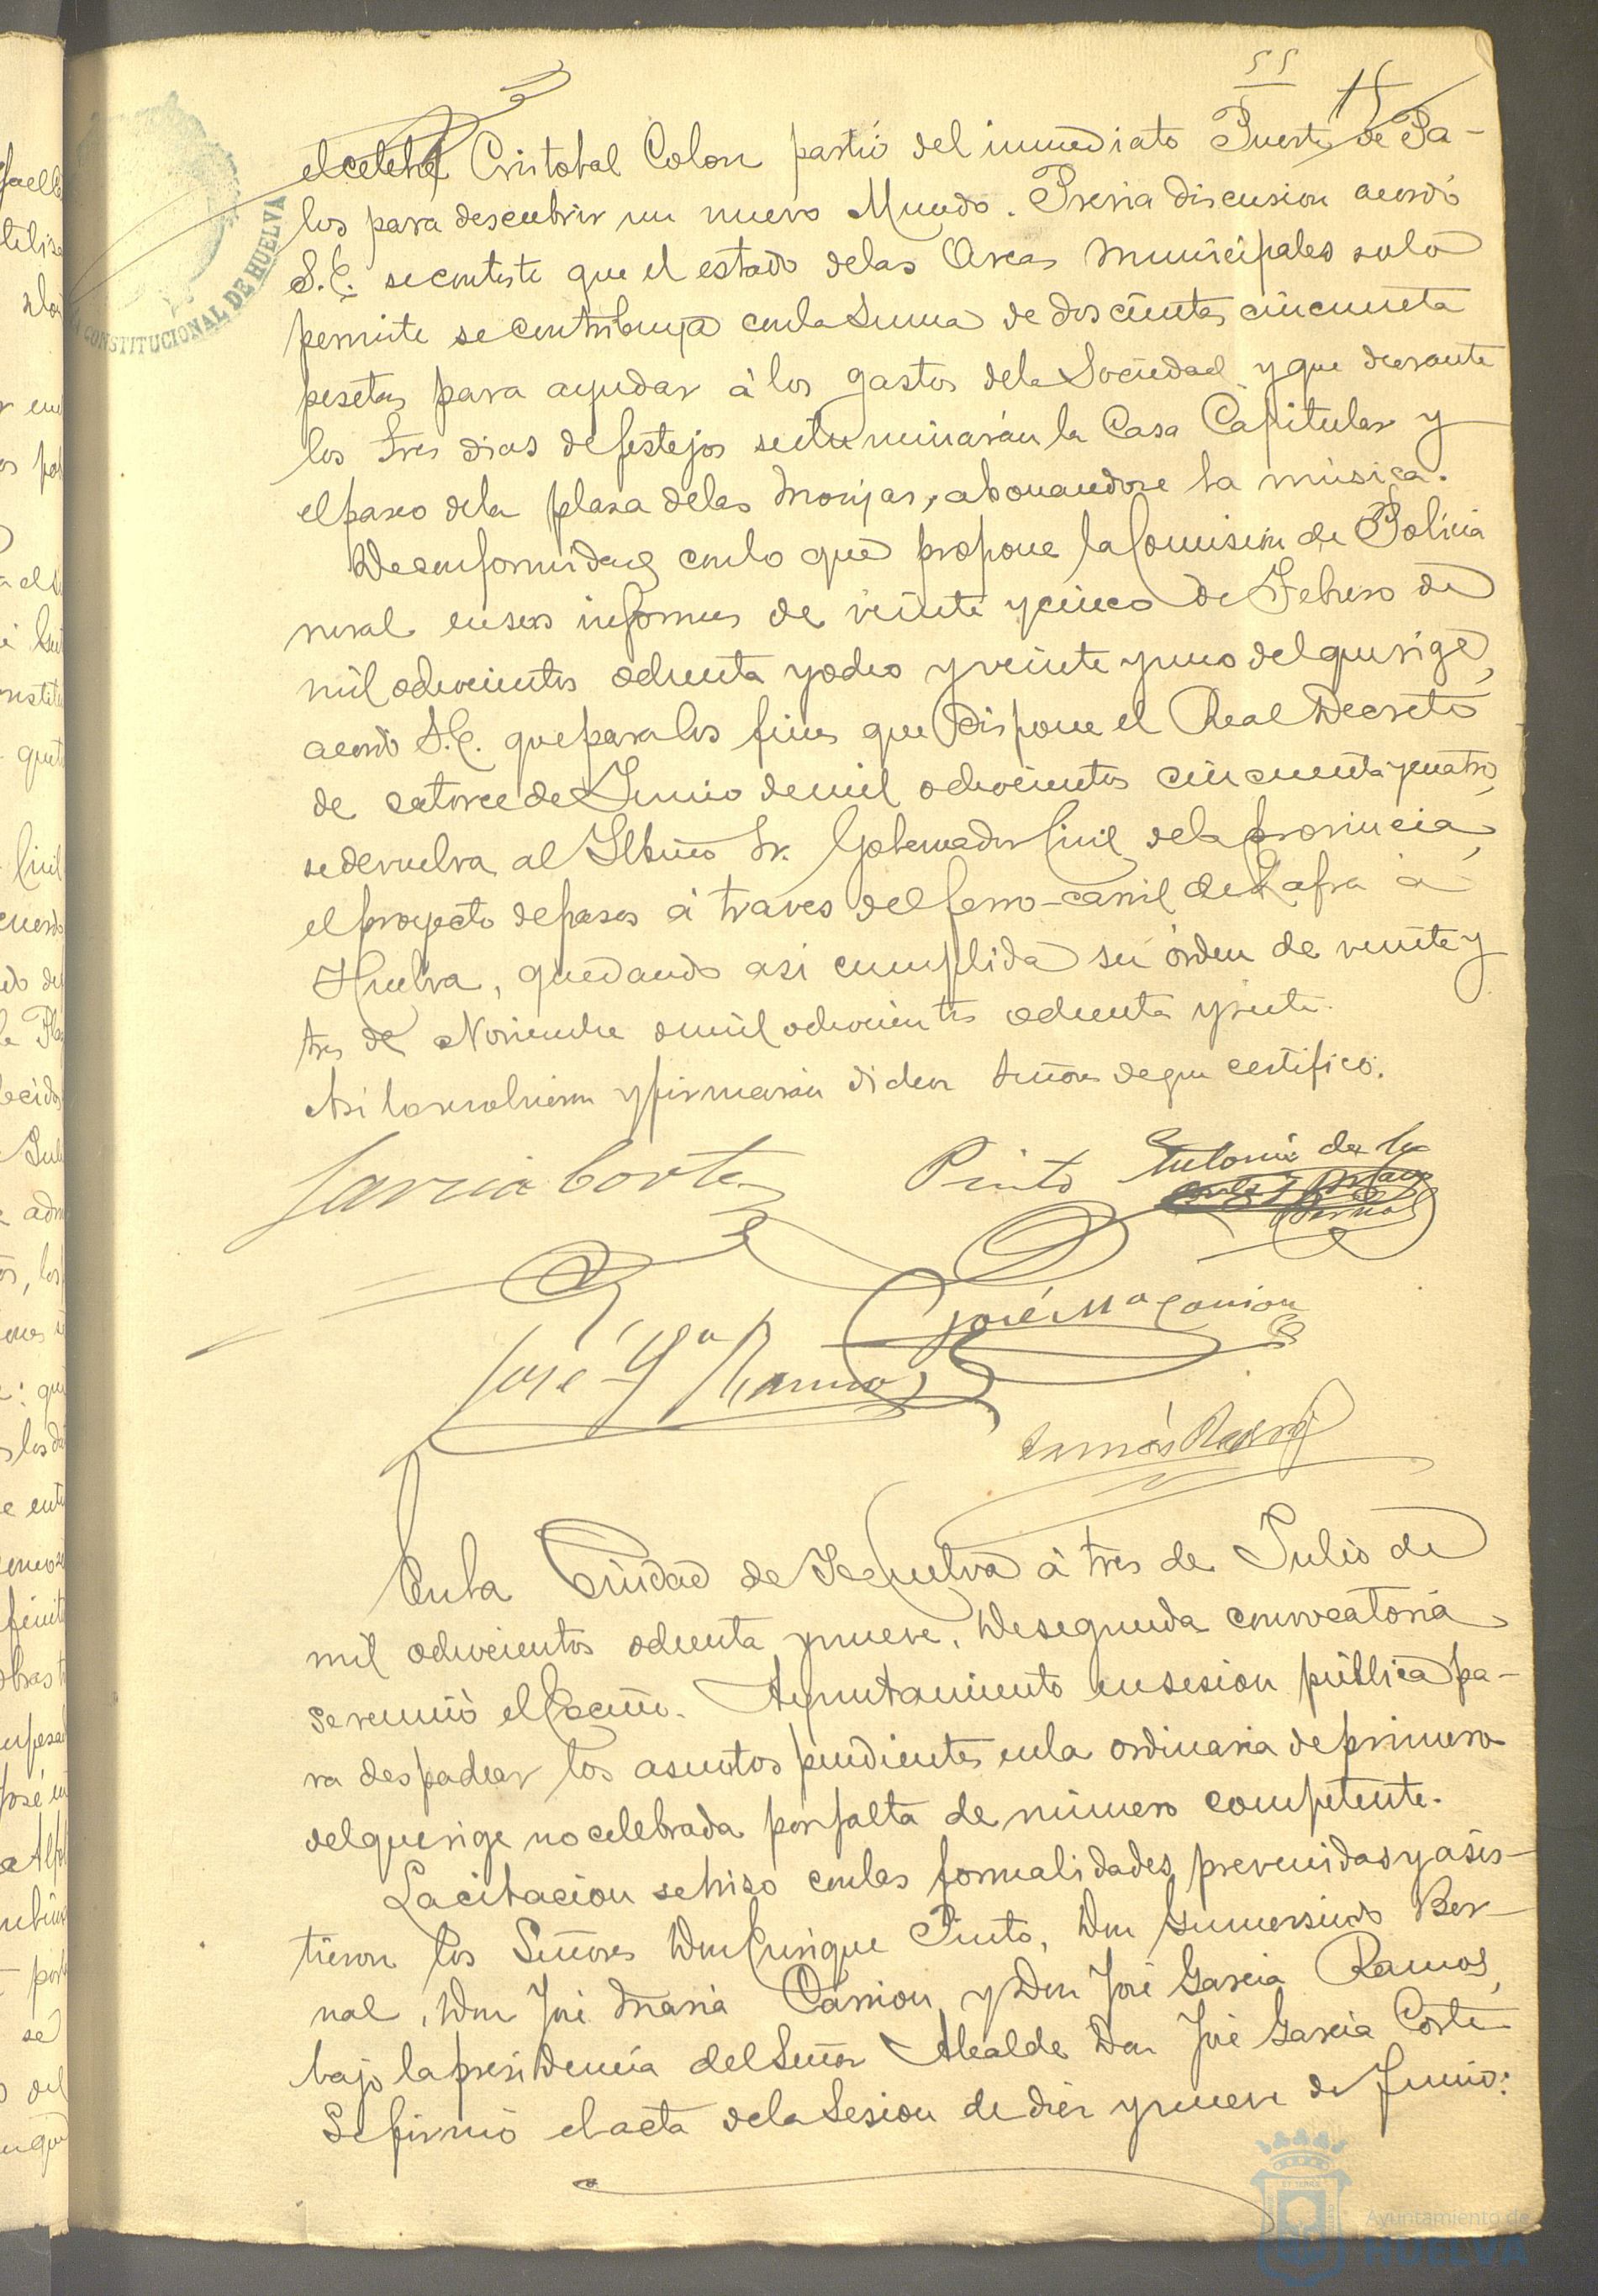 55
el celebre Cristobal Colon partió del inmediato Puerto de Pa-
los para descubrir un nuevo Mundo. Previa discusion acordó
S.E. se conteste que el estado de las Arcas Municipales solo
permite se contribuya con la suma de doscientas cincuenta
pesetas para ayudar á los gastos de la Sociedad y que durante
los tres dias de festejos se iluminarán la Casa Capitular y
el paseo de la plaza de las Monjas, abonandose la música.
De conformidad con lo que propone la Comision de Policia
rural en sus informes de veinte y cinco de Febrero de
mil ochocientos ochenta y ocho y veinte y uno del que rige,
acordó S.E. que para los fines que dispone el Real Decreto
de catorce de Junio de mil ochocientos cincuenta y cuatro,
se devuelva al Iltmo Sr. Gobernador Civil de la provincia,
el proyecto de pasos á traves del ferro-carril de Zafra á
Huelva, quedando asi cumplida su órden de veinte y
tres de Noviembre de mil ochocientos ochenta y siete.
Asi lo resolvieron y firmarán dichos Señores de que certifico.
Garcia Cortes
Pinto
Antonio de la
Corte y
José Mª Carrion
José Gª Ramos
Tomás
En la Ciudad de Huelva á tres de Julio de
mil ochocientos ochenta y nueve. De segunda convocatoria
se reunió el Excmo. Ayuntamiento en sesion pública pa-
ra despachar los asuntos pendientes en la ordinaria de primero
del que rige no celebrada por falta de número competente.
La citacion se hizo con las formalidades prevenidas y asis-
tieron los Señores Don Enrique Pinto, Don Gumersindo Ber-
nal, Don José Maria Carrion y Don José Garcia Ramos,
bajo la presidencia del Señor Alcalde Don José Garcia Cortes
Se firmó el acta de la Sesion de diez y nueve de Junio:
CONSTITUCIONAL DE HUELVA
Ayuntamiento de
HUELVA